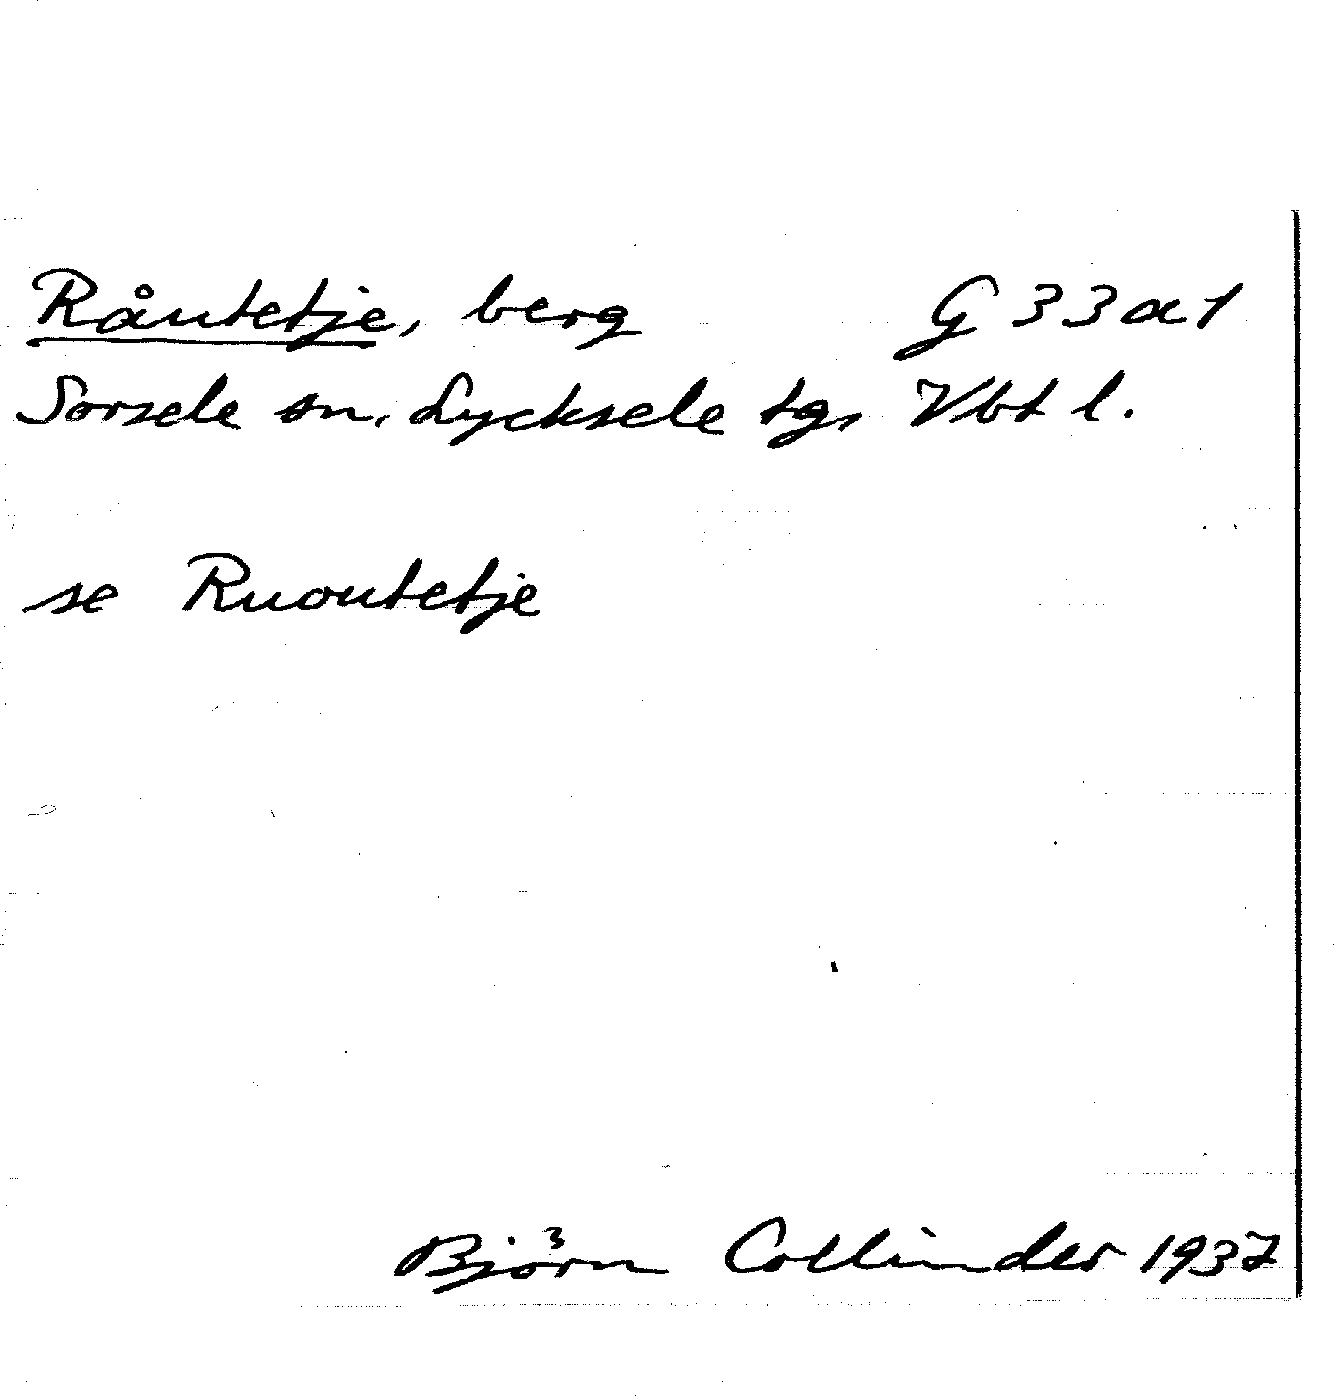 Råutetje, berg G 33 a 1
Sorsele sn. Lycksele tg, Vbt l.
se Ruoutetje
Björn Collinder 1937